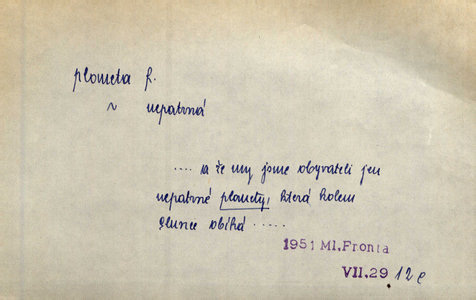 planeta f.
~ nepatrná
.... a že my jsme obyvateli jen
nepatrné planety, která kolem
Slunce obíhá .....
1951 Ml. Fronta
VII, 29 . 12 c